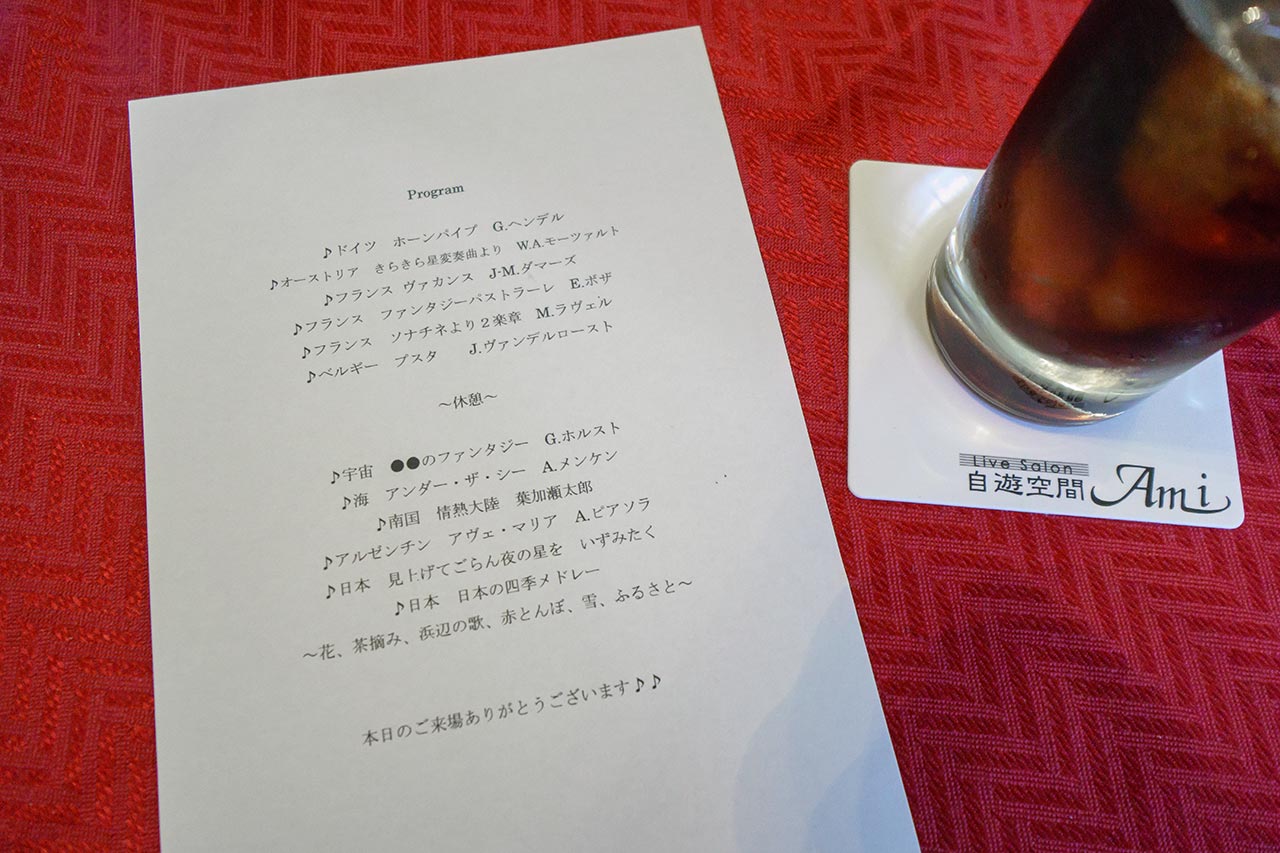 Program
♪ドイツ　ホーンパイプ　G.ヘンデル
♪オーストリア　きらきら星変奏曲より　W.A.モーツァルト
♪フランス ヴァカンス　J-M.ダマーズ
♪フランス　ファンタジーパストラーレ　E.ボザ
♪フランス　ソナチネより２楽章　M.ラヴェル
♪ベルギー　プスタ　　J.ヴァンデルロースト
～休憩～
♪宇宙　●●のファンタジー　G.ホルスト
♪海　アンダー・ザ・シー　A.メンケン
♪南国　情熱大陸　葉加瀬太郎
♪アルゼンチン　アヴェ・マリア　A.ピアソラ
♪日本　見上げてごらん夜の星を　いずみたく
♪日本　日本の四季メドレー
～花、茶摘み、浜辺の歌、赤とんぼ、雪、ふるさと～
本日のご来場ありがとうございます♪♪
Live Salon
自遊空間 Ami